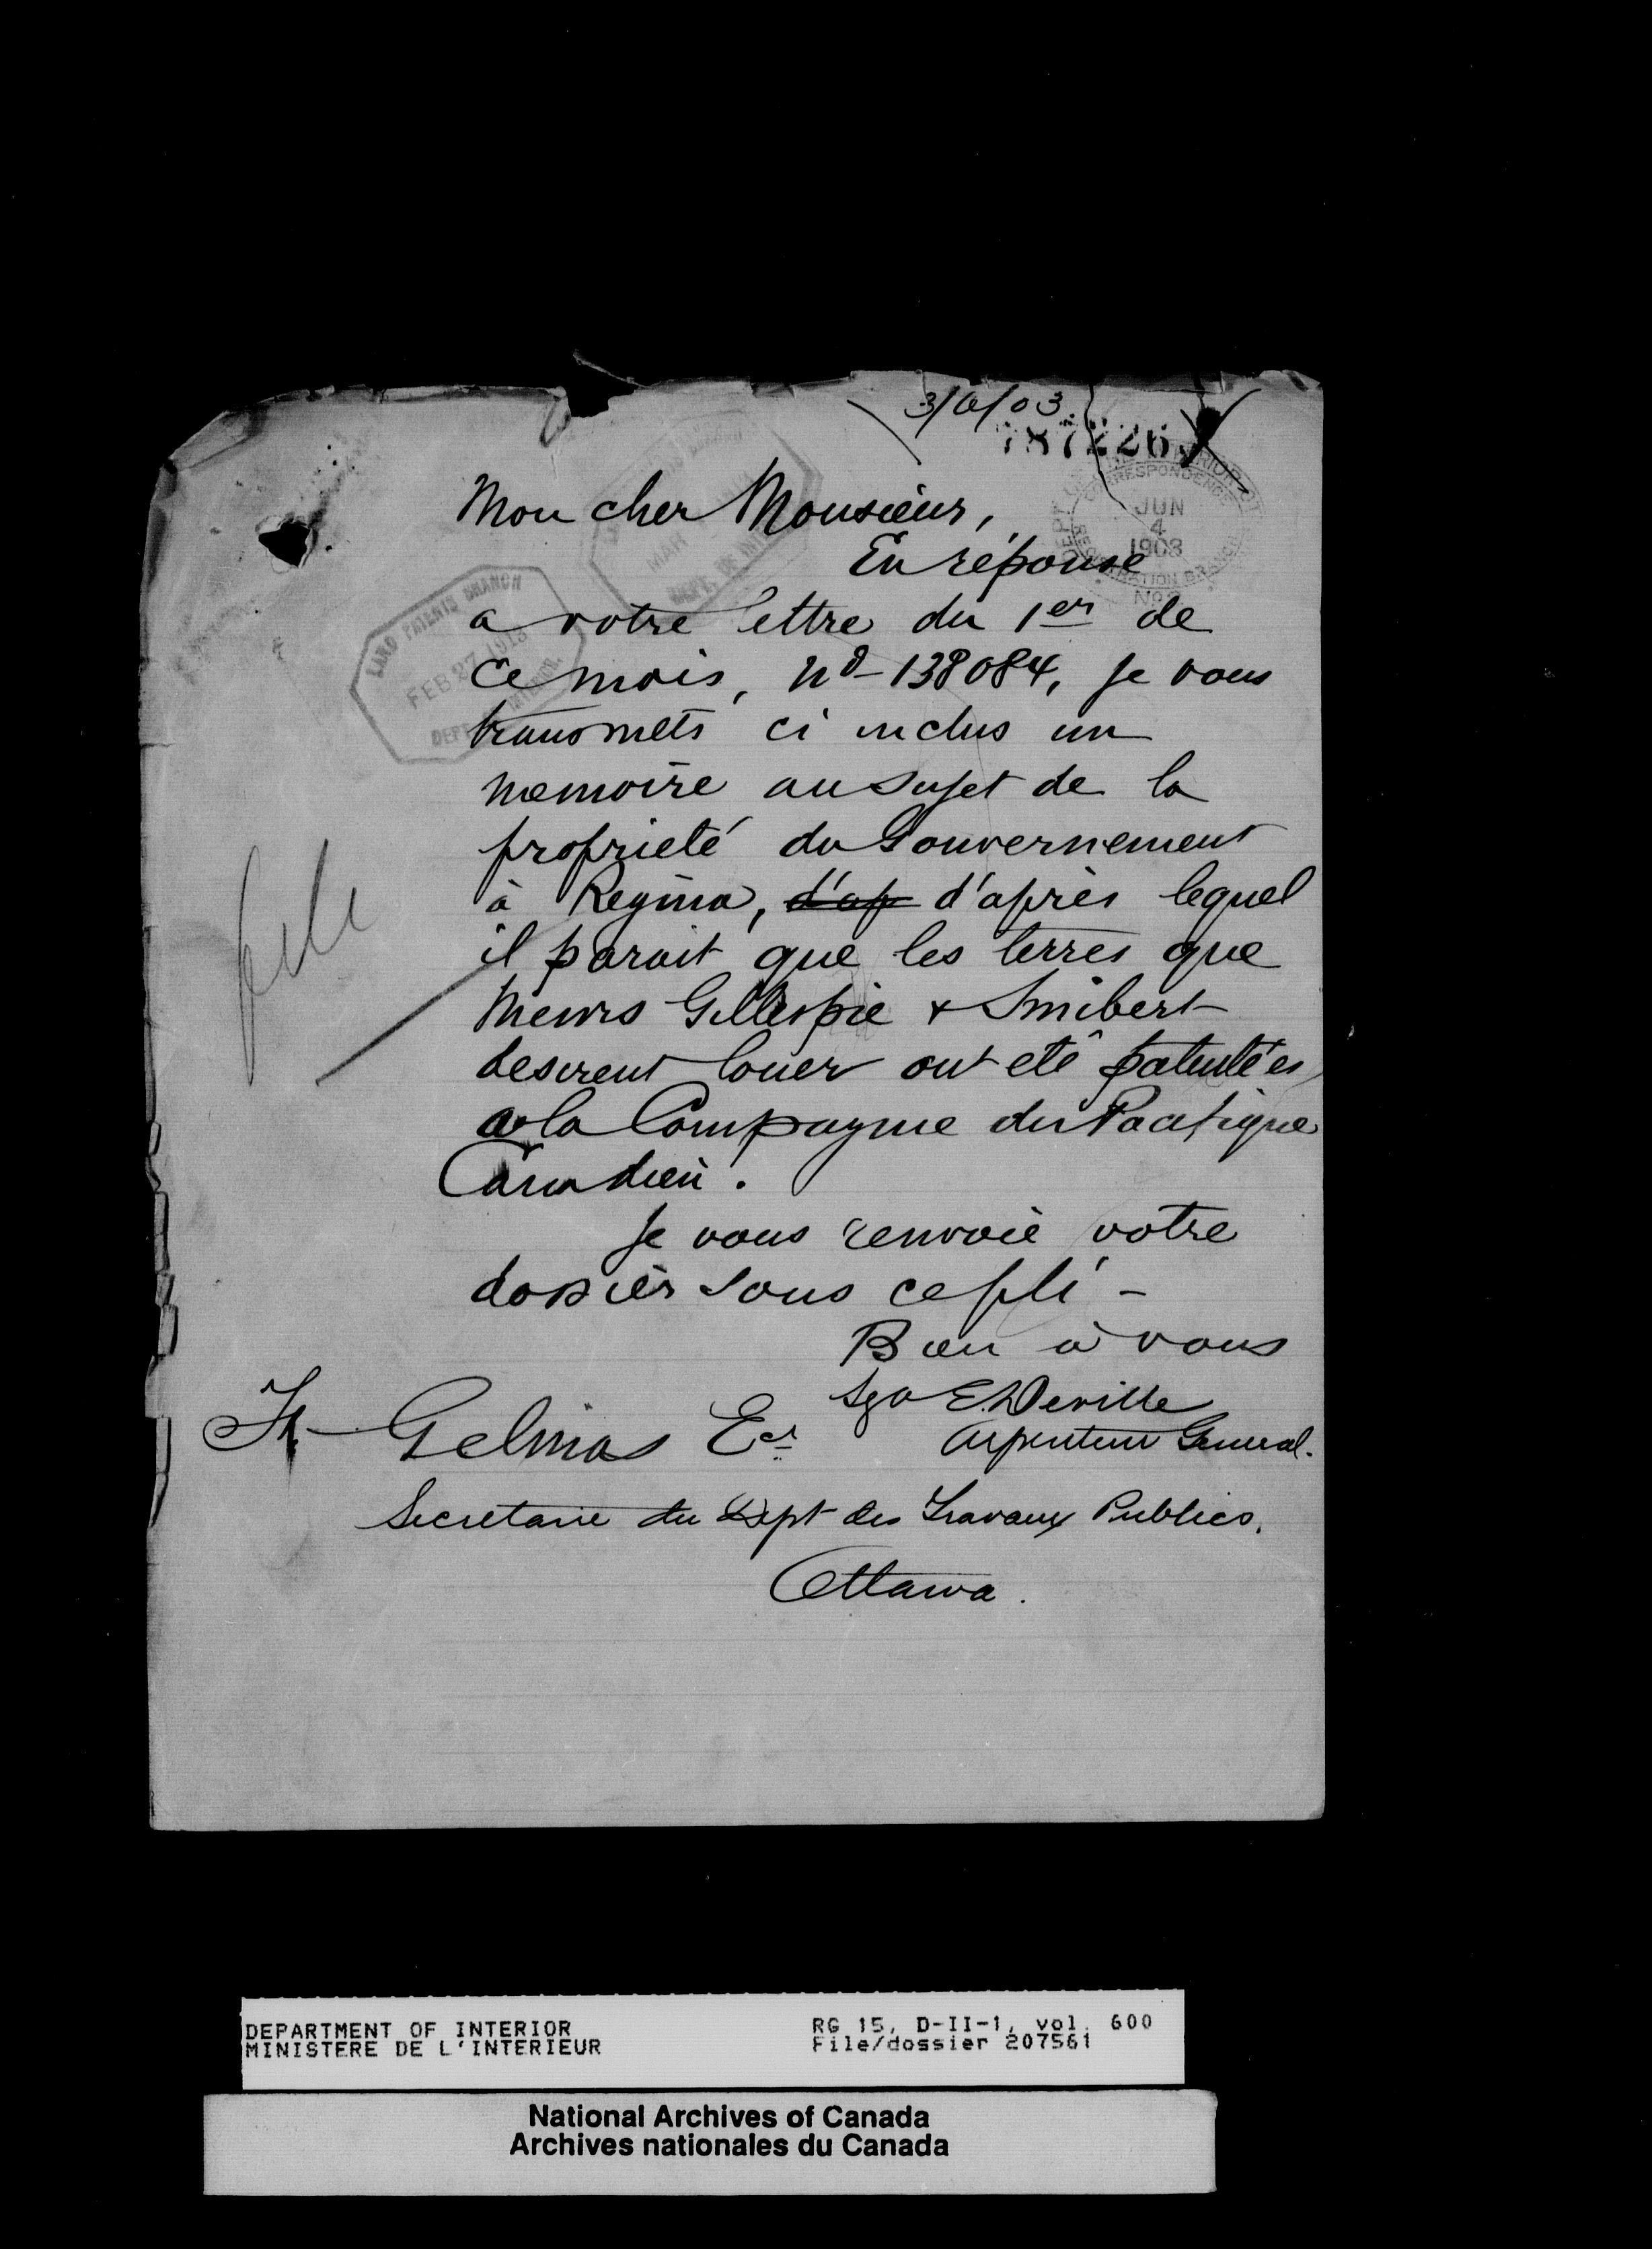 3/6/03
787226
DEPT. OF THE INTERIOR
CORRESPONDENCE
JUN
4
1903
REGISTRATION BRANCH
No 2
MAR
DEPT. OF INT
LAND PATENTS BRANCH
FEB 27 1913
DEPT. OF INTERIOR.
Mon cher Monsieur,
En réponse
a votre lettre du 1er de
ce mois, No 138084, je vous
transmets ci inclus un
memoire au sujet de la
proprieté du Gouvernement
à Regina, d'ap d'après lequel
il parait que les terres que
Messrs Gillespie & Smibert
desirent louer ont eté patentées
a la Compagnie du Pacifique
Canadien.
Je vous renvoie votre
dossier sous ce pli -
Bien à vous
Sgd E. Deville
Arpenteur General.
file
Gelinas Ecr
Secretaire du Dept des Travaux Publics.
Ottawa.
DEPARTMENT OF INTERIOR
MINISTERE DE L'INTERIEUR
RG 15, D-II-1, vol. 600
File/dossier 207561
National Archives of Canada
Archives nationales du Canada